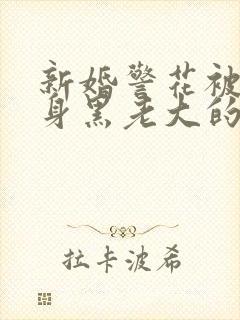 新婚警花被
身黑老大的
拉卡波希